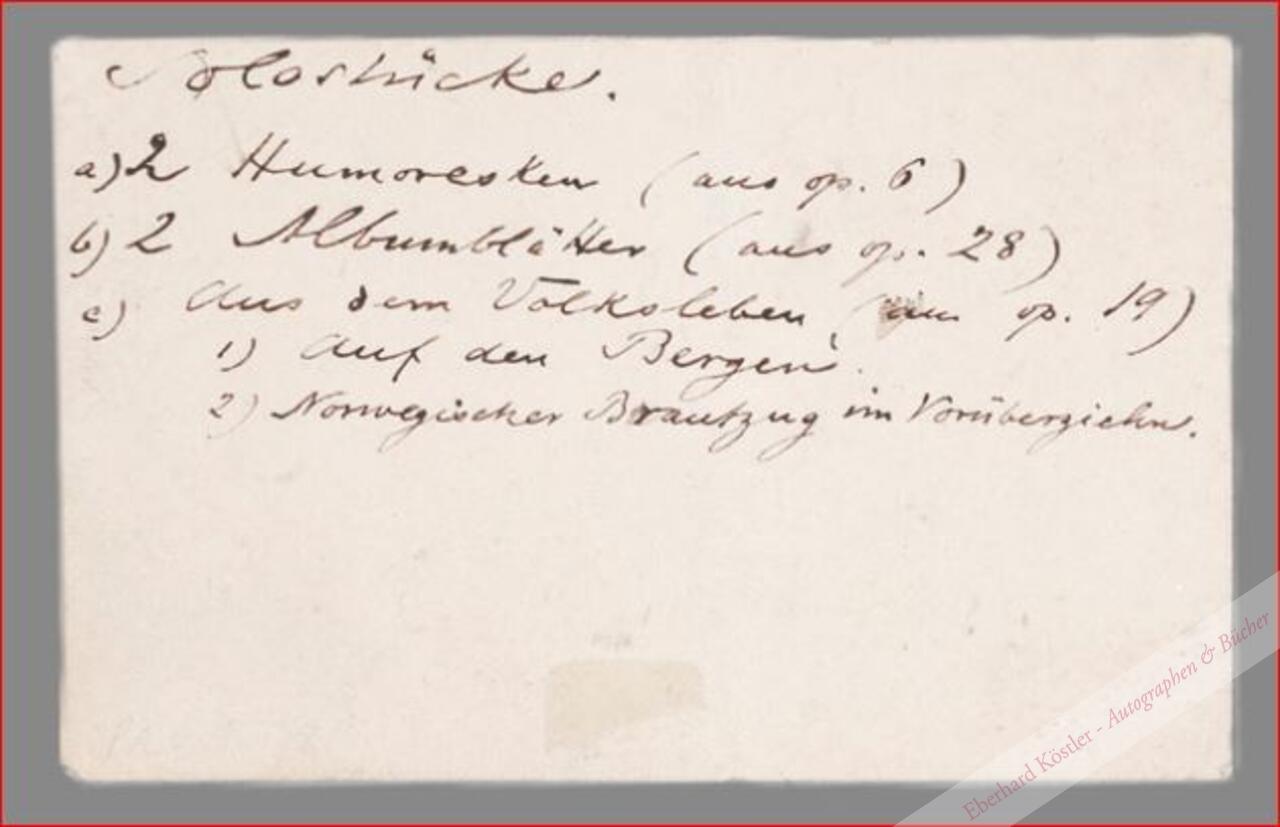 Solostücke.
a) 2 Humoresken (aus op. 6)
b) 2 Albumblätter (aus op. 28)
c) Aus dem Volksleben (aus op. 19)
1) Auf den Bergen.
2) Norwegischer Brautzug im Vorüberziehn.
Eberhard Köstler - Autographen & Bücher